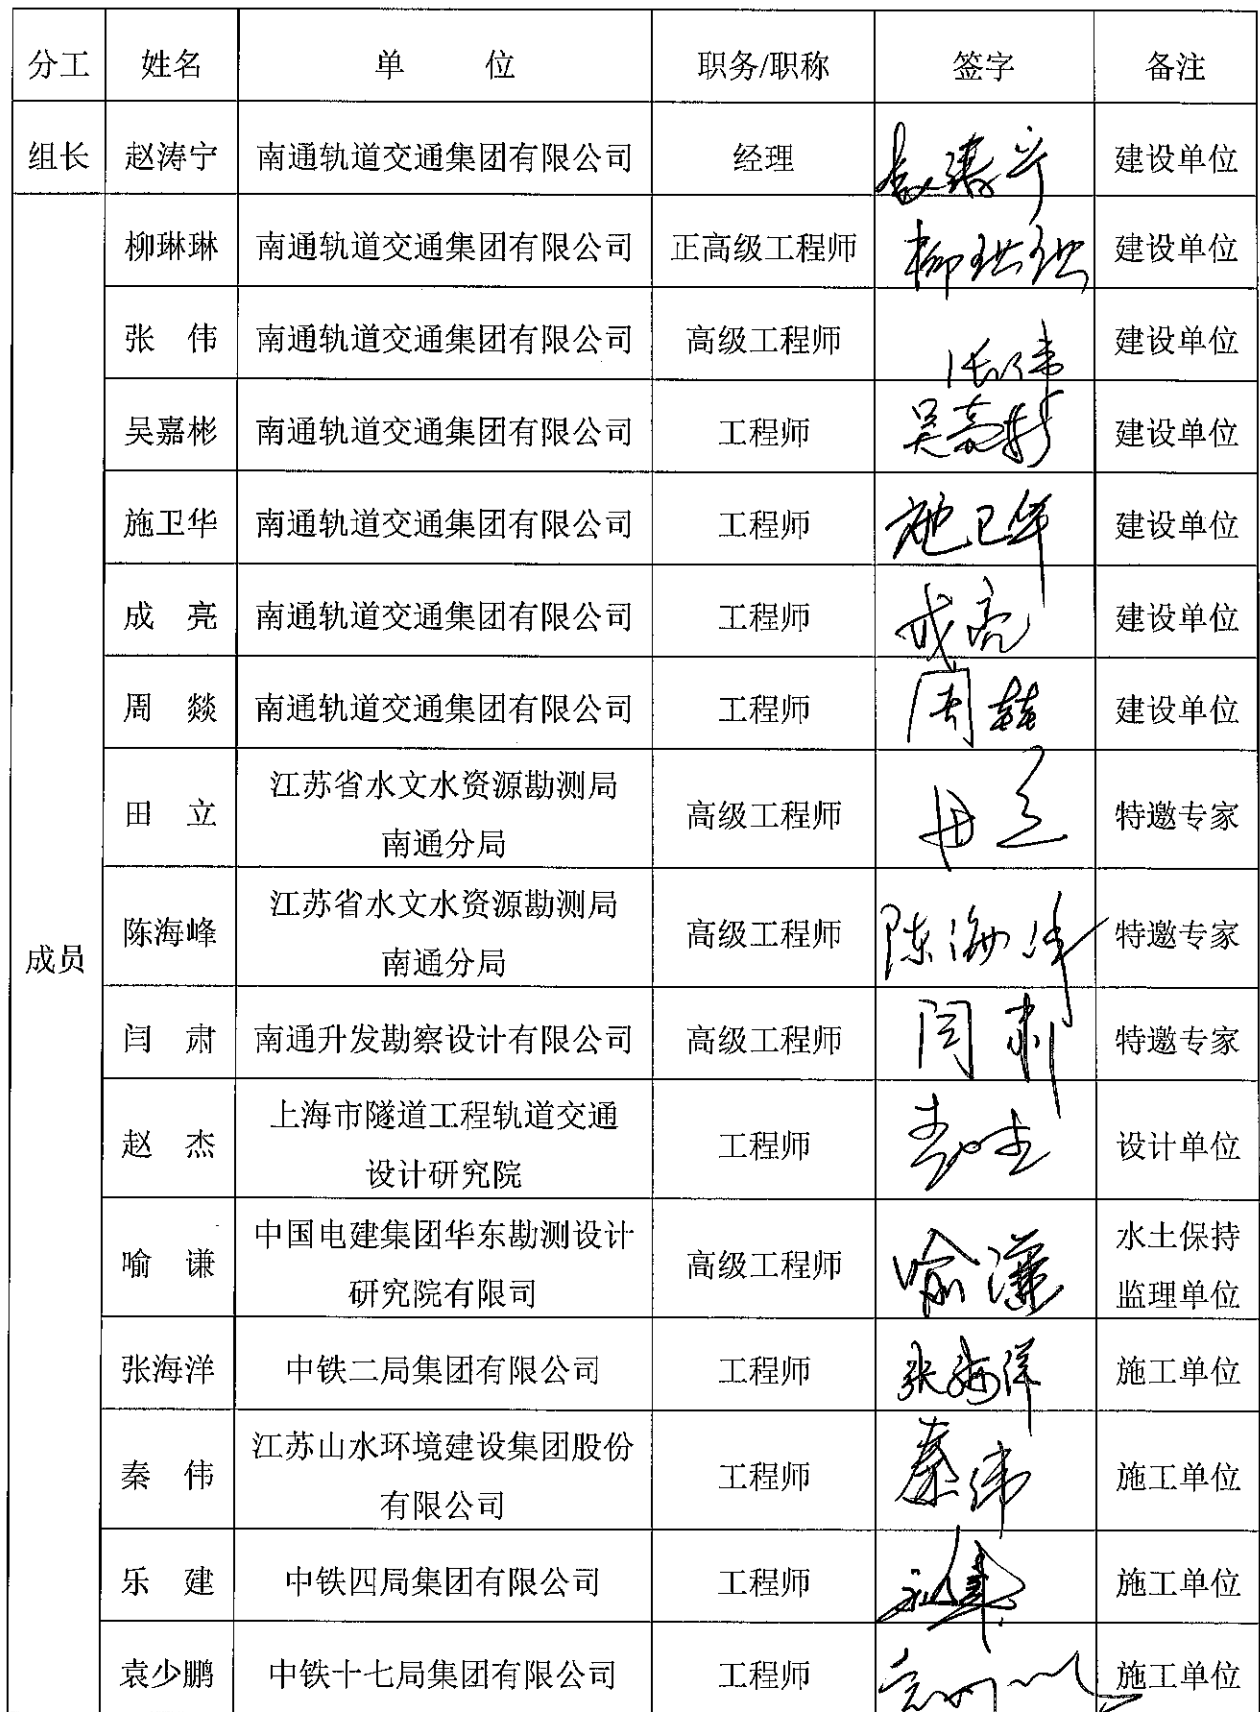 分工 姓名 单 位 职务/职称 签字 备注
组长 赵涛宁 南通轨道交通集团有限公司 经理 赵涛宁 建设单位
柳琳琳 南通轨道交通集团有限公司 正高级工程师 柳琳琳 建设单位
张 伟 南通轨道交通集团有限公司 高级工程师 张伟 建设单位
吴嘉彬 南通轨道交通集团有限公司 工程师 吴嘉彬 建设单位
施卫华 南通轨道交通集团有限公司 工程师 施卫华 建设单位
成 亮 南通轨道交通集团有限公司 工程师 成亮 建设单位
周 燚 南通轨道交通集团有限公司 工程师 周燚 建设单位
江苏省水文水资源勘测局
田 立 高级工程师 田立 特邀专家
南通分局
江苏省水文水资源勘测局
陈海峰 高级工程师 陈海峰 特邀专家
成员
南通分局
闫 肃 南通升发勘察设计有限公司 高级工程师 闫肃 特邀专家
上海市隧道工程轨道交通
赵 杰 工程师 赵杰 设计单位
设计研究院
中国电建集团华东勘测设计 水土保持
喻 谦 高级工程师 喻谦
研究院有限司 监理单位
张海洋 中铁二局集团有限公司 工程师 张海洋 施工单位
江苏山水环境建设集团股份
秦 伟 工程师 秦伟 施工单位
有限公司
乐 建 中铁四局集团有限公司 工程师 施工单位
袁少鹏 中铁十七局集团有限公司 工程师 施工单位